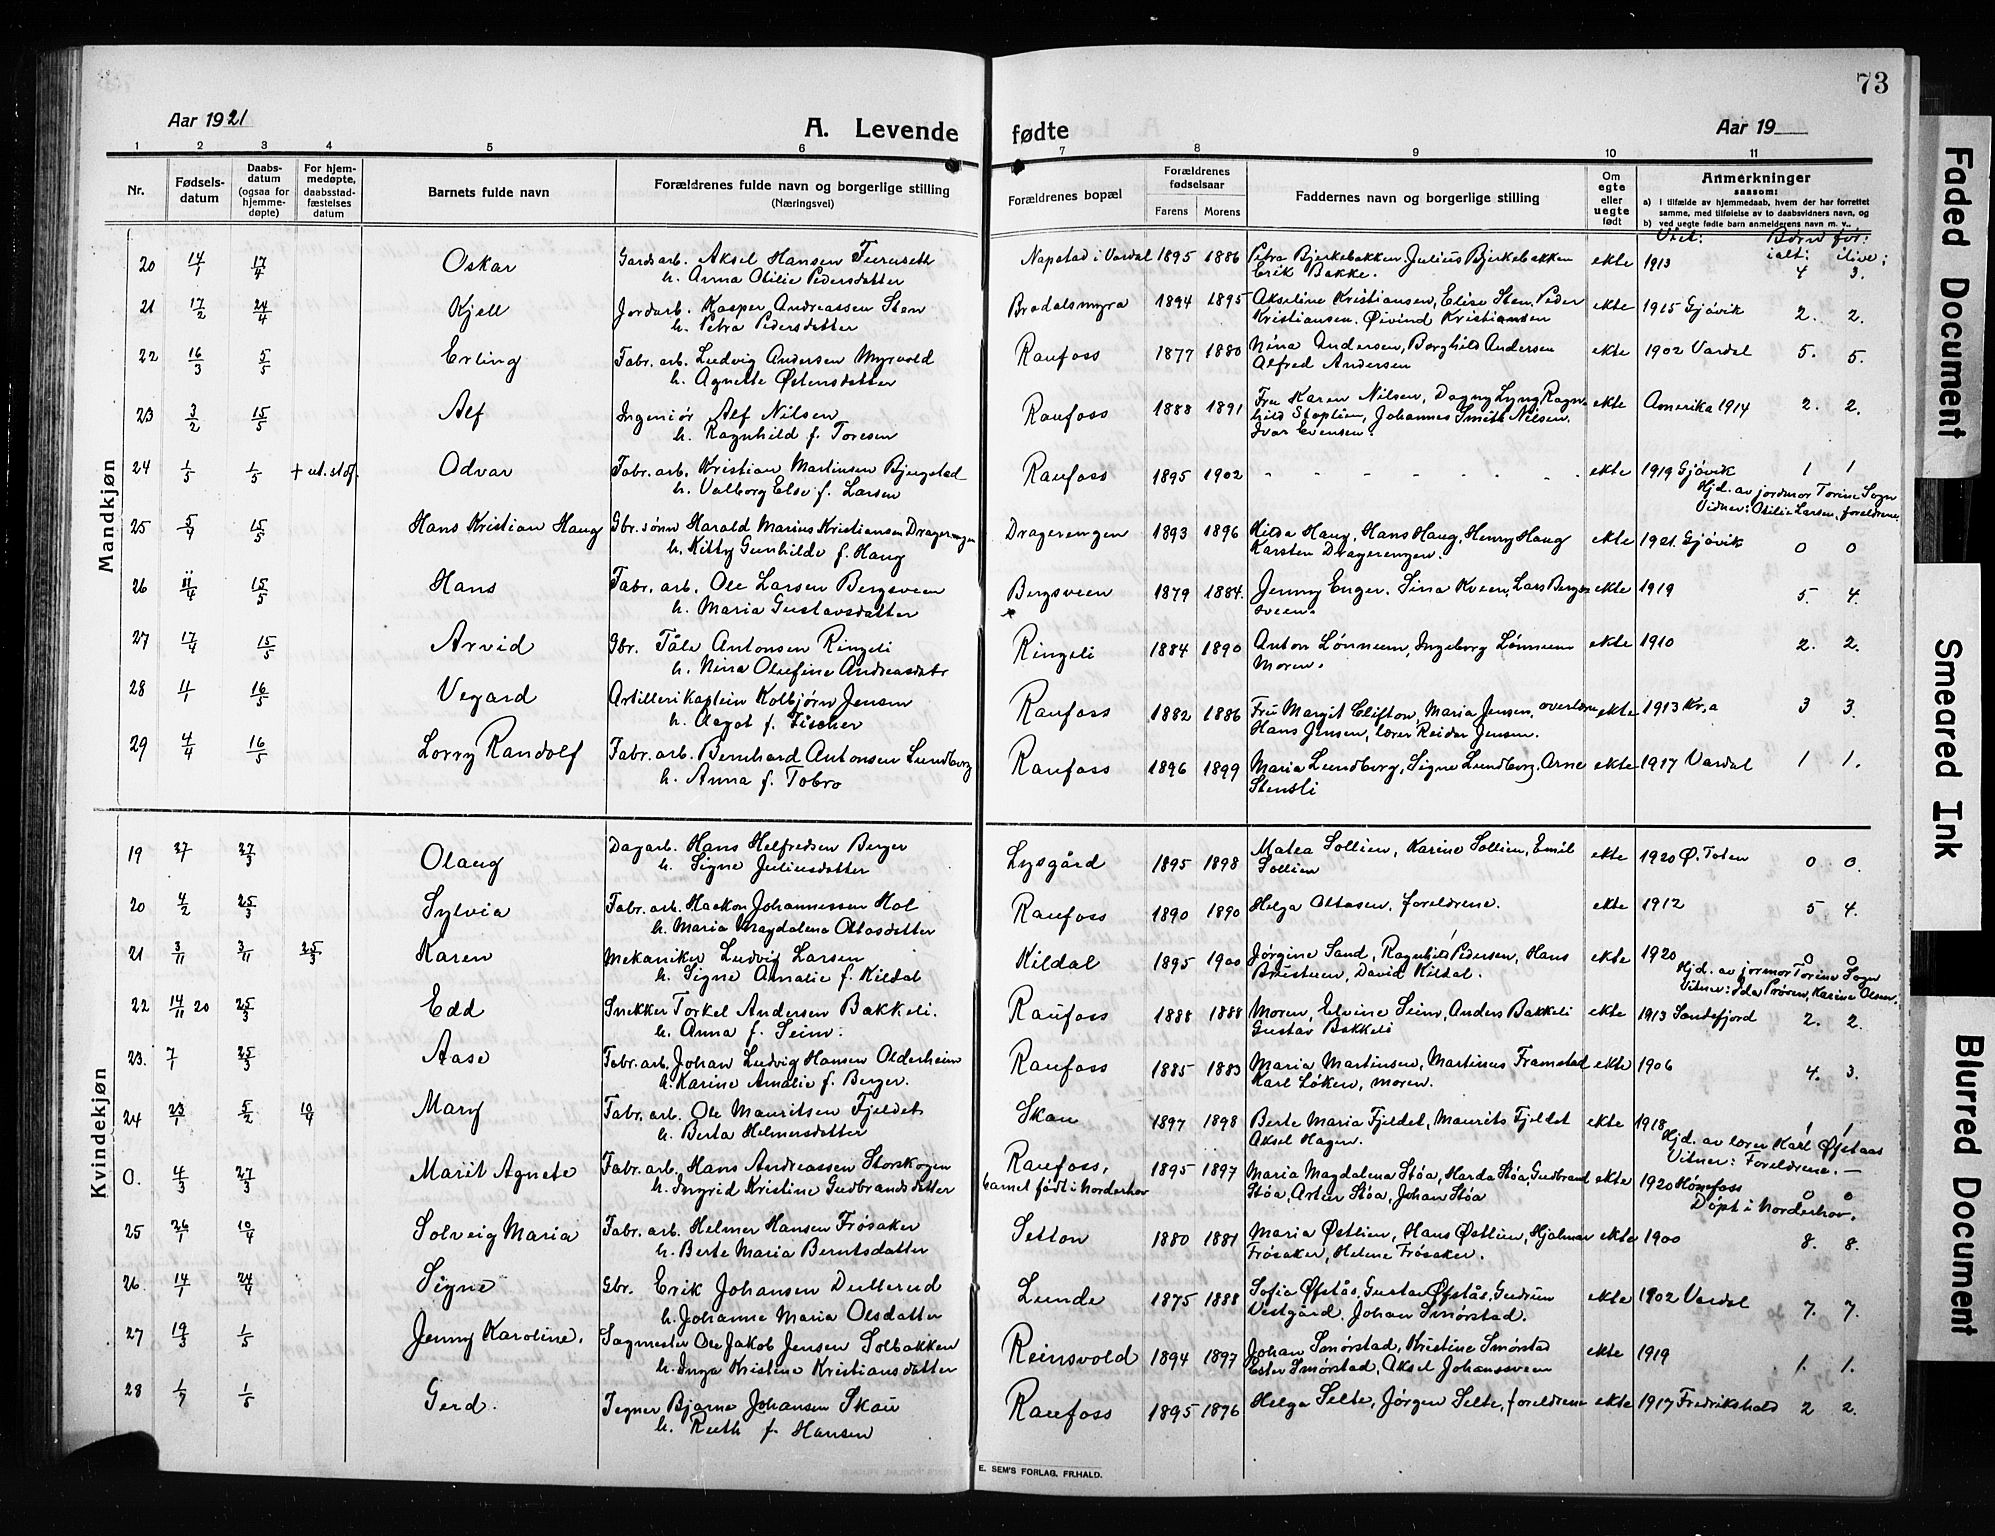 73
Aar 1921
A. Levende fødte
Aar 19
1 2 3 4 5 6 7 8 9 10 11
Nr. Fødsels-datum Daabs-datum (ogsaa for hjemme-døpte) For hjem-medøpte, daabsstad-fæstelses datum Barnets fulde navn Forældrenes fulde navn og borgerlige stilling (Næringsvei) Forældrenes bopæl Forældrenes fødselsaar Farens Morens Faddernes navn og borgerlige stilling Om egte eller uegte født Anmerkninger saasom:
a) I tilfælde av hjemmedaab, hvem der har forrettet samme, med tilføielse av to daabsvidners navn, og
b) ved uegte fødte barn anmelderens navn m. v.
Viet: Børn før: ialt: ilive:
Mandkjøn
20 14/1 17/4 Oskar Gardsarb. Aksel Hansen Furuseth Napstad i Vardal 1895 1886 Petra Bjerkebakken, Julius Bjerkebakken ekte 1913 4 3.
h. Anna Otilie Pedersdatter Erik Bakke.
21 17/2 24/4 Kjell Jordarb. Kasper Andreassen Sten Bradalsmyra 1894 1895 Akseline Kristiansen, Elise Sten, Peder ekte 1915 Gjøvik 2. 2.
h. Petra Pedersdatter Kristiansen. Øivind Kristiansen
22 16/3 5/5 Erling Fabr. arb. Ludvig Andersen Myrvold Raufoss 1877 1880 Nina Andersen, Borghild Andersen ekte 1902 Vardal 5. 5.
h. Agnette Østensdatter Alfred Andersen
23 3/2 15/5 Alf Ingeniør Alf Nilsen Raufoss 1888 1891 Fru Karen Nilsen, Dagny Lyng Ragn- ekte Amerika 1914 2. 2.
h. Ragnhild f. Toresen hild Stoplien, Johannes Smith Nilsen.
Ivar Evensen.
24 1/5 1/5 + ut. st.f. Odvar Fabr. arb. Kristian Martinsen Bjugstad Raufoss 1895 1902 - - - - - - ekte 1919 Gjøvik 1 1
h. Valborg Else f. Larsen Hjd. av jordmor Torine Sogn
Vidner: Otilie Larsen, foreldrene.
25 5/4 15/5 Hans Kristian Haug Gbr. sønn Harald Marius Kristiansen Dragerengen Dragerengen 1893 1896 Hilda Haug, Hans Haug, Henry Haug ekte 1921. Gjøvik 0 0
h. Kitty Gunhilde f. Haug Karsten Dragerengen.
26 11/4 15/5 Hans Fabr. arb. Ole Larsen Bergsveen Bergsveen 1879 1884. Jenny Enger. Sina Kveen, Lars Bergs- ekte 1919 5. 4.
h. Maria Gustavsdatter sveen.
27 17/4 15/5 Arvid Gbr. Tåle Antonsen Ringeli Ringeli 1884 1890 Anton Lønneum, Ingeborg Lønneum ekte 1910 2. 2.
h. Nina Olefine Andreasdatr Moren.
28 4/1 16/5 Vegard Artillerikaptein Kolbjørn Jensen Raufoss 1882 1886 Fru Margit Clifton, Maria Jensen, overlærer ekte 1913 Kr.a 3 3.
h. Aagot f. Fischer Hans Jensen, lærer Reidar Jensen.
29 4/4 16/5 Lorry Randolf Fabr. arb. Bernhard Antonsen Lundborg Raufoss 1896 1899 Maria Lundborg, Signe Lundborg. Arne ekte 1917 Vardal 1 1.
h. Anna f. Tobro Stensli
Kvindekjøn
19 27/1 27/3 Olaug Dagarb. Hans Helfredsen Berger Lysgård 1895 1898 Matea Sollien, Karine Sollien, Emil ekte 1920 Ø. Toten 0 0.
h. Signe Juliusdatter Sollien
20 4/2 25/3 Sylvia Fabr. arb. Haakon Johannessen Hol Raufoss 1890 1890 Helga Ottosen, foreldrene. ekte 1912 5 4.
h. Maria Magdalena Ottosdatter
21 3/11 3/11 25/3 Karen Mekaniker Ludvig Larsen Kildal 1895 1900 Jørgine Sand, Ragnhild Pedersen, Hans ekte 1920 0 0
h. Signe Amalie f. Kildal Bristuen, David Kildal. Hjd. av jormor Torine Sogn
Vitner: Ida Prøven, Karine Olsen.
22 14/11 20 25/3 Edd Snekker Torkel Andersen Bakkeli. Raufoss 1888 1888 Moren, Elvine Seim, Anders Bakkeli ekte 1913 Sandefjord 2. 2.
h. Anna f. Seim. Gustav Bakkeli
23. 7 25/3 Aase Fabr. arb. Johan Ludvig Hansen Olderheim Raufoss 1885 1883 Maria Martinsen, Martinus Framstad ekte 1906 4. 3.
h. Karine Amalie f. Berger. Karl Løken, moren.
24 23/1 5/2 10/4 Mary Fabr. arb. Ole Mauritsen Fjeldet Skau 1897 1898 Berte Maria Fjeldet, Maurits Fjeldet ekte 1918 1 1
h. Berta Helmersdatter Aksel Hagen. Hjd. av lærer Karl Øfstaas
Vitner: Foreldrene. —
0. 4/3 27/3 Marit Agnete Fabr. arb. Hans Andreassen Storskogen Raufoss, 1895 1897 Maria Magdalena Støa, Harda Støa, Gudbrand ekte 1920 Hønefoss 0 0
h. Ingrid Kristine Gudbrandsdatter barnet født i Norderhov Støa, Artur Støa, Johan Støa Døpt i Norderhov.
25 26/1 10/4 Solveig Maria Fabr. arb. Helmer Hansen Frøsaker Setton 1880 1881 Maria Østlien, Hans Østlien, Hjalmar ekte 1900 8. 8.
h. Berte Maria Berntsdatter Frøsaker, Helene Frøsaker.
26 14/1 24/4 Signe Gbr. Erik Johansen Dullerud Lunde 1875 1888 Sofia Øfstås, Gustav Øfstås, Gudrun ekte 1902 Vardal 7. 7.
h. Johanne Maria Olsdatter Vestgård. Johan Smørstad.
27 19/3 1/5 Jenny Karoline. Sagmester Ole Jakob Jensen Solbakken Reinsvold 1894 1897 Johan Smørstad, Kristine Smørstad ekte 1919 1. 1.
h. Inga Kristine Kristiansdatter Ester Smørstad, Aksel Johanssveen
28 1/7 1/5 Gerd. Tegner Bjarne Johansen Skau Raufoss 1895 1876 Helga Selte, Jørgen Selte, foreldrene ekte 1917 Fredrikshald 2 2.
h. Ruth f. Hansen
E. SEM'S FORLAG, FR.HALD.
Faded Document
Smeared Ink
Blurred Document